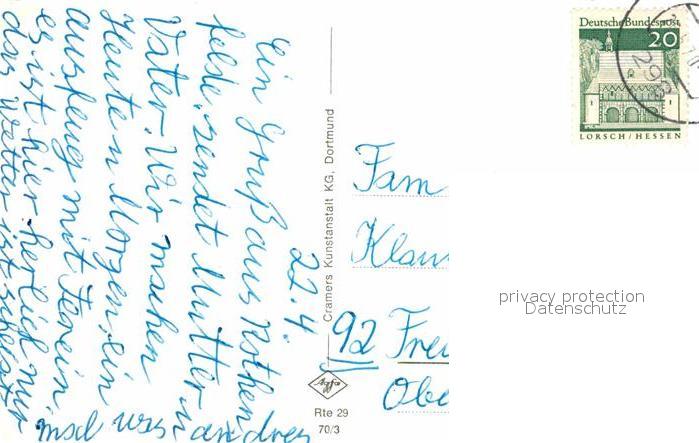 22.4.
Ein Gruß aus Rothen
felde sendet Mutter u
Vater. Wir machen
Heute n Morgen, ein
ausfleug mit Verein
es ist hier herlich nur
das wetter ist schlecht
mal was andres
Cramers Kunstanstalt KG, Dortmund
Agfa
Rte 29
70/3
Deutsche Bundespost
20
LORSCH/HESSEN
Fam
Klau
92 Frei
Obe
privacy protection
Datenschutz